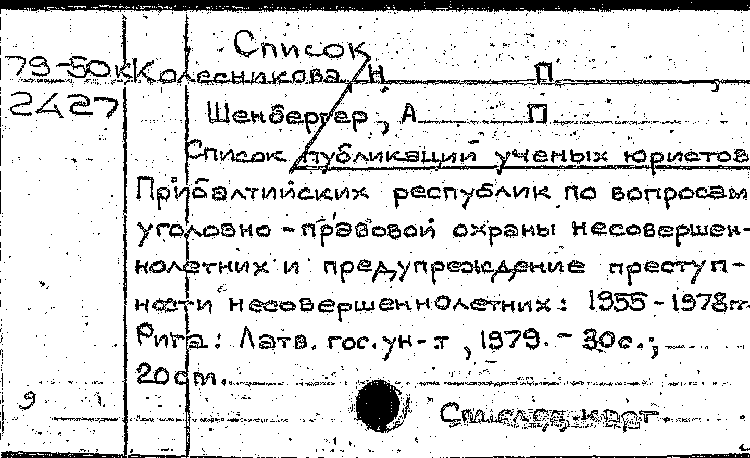 Список
79-50к Колесникова, Н П ,
2427 Шенбергер, А П
Список публикаций ученых юристов
Прибалтийских республик по вопросам
уголовно-правовой охраны несовершен-
нолетних и предупреждение преступ-
ности несовершеннолетних: 1955-1978гг.
Рига: Латв. гос. ун-т, 1979. - 30с.;
20см.
9 См. след. карт.